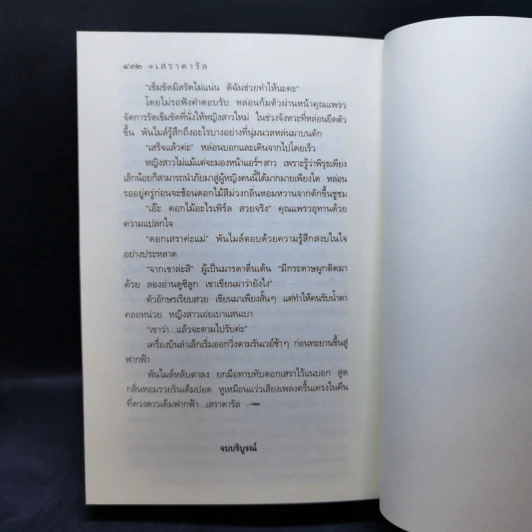 ๔๓๒ • เสราดารัล
"เข็มขัดมิสรัดไม่แน่น ดิฉันช่วยทำให้นะคะ"
โดยไม่รอฟังคำตอบรับ หล่อนก้มตัวผ่านหน้าคุณแพรว
จัดการรัดเข็มขัดที่นั่งให้หญิงสาวใหม่ ในช่วงจังหวะที่หล่อนยืดตัว
ขึ้น พันไมล์รู้สึกถึงอะไรบางอย่างที่นุ่มนวลหล่นมาบนตัก
"เสร็จแล้วค่ะ" หล่อนบอกและเดินจากไปโดยเร็ว
หญิงสาวไม่แม้แต่จะมองหน้าแอร์ฯ สาว เพราะรู้ว่าพิรุธเพียง
เล็กน้อยก็สามารถนำภัยมาสู่ผู้หญิงคนนี้ได้มากมายเพียงใด หล่อน
รออยู่ครู่ก่อนจะช้อนดอกไม้สีม่วงกลิ่นหอมหวานจากตักขึ้นชูชม
"เอ๊ะ ดอกไม้อะไรเพิร์ล สวยจริง" คุณแพรวอุทานด้วย
ความแปลกใจ
"ดอกเสราค่ะแม่" พันไมล์ตอบด้วยความรู้สึกสงบในใจ
อย่างประหลาด
"จากเขาล่ะสิ" ผู้เป็นมารดาตื่นเต้น "มีกระดาษผูกติดมา
ด้วย ลองอ่านดูซิลูก เขาเขียนมาว่ายังไง"
ตัวอักษรเรียบสวย เขียนมาเพียงสั้นๆ แต่ทำให้คนรับน้ำตา
คลอหน่วย หญิงสาวเอ่ยเบาแสนเบา
"เขาว่า...แล้วจะตามไปรับค่ะ"
เครื่องบินลำเล็กเริ่มออกวิ่งตามรันเวย์ช้าๆ ก่อนทะยานขึ้นสู่
ฟากฟ้า
พันไมล์หลับตาลง ยกมือทาบทับดอกเสราไว้แนบอก สูด
กลิ่นหอมรวยรินเต็มปอด หูเหมือนแว่วเสียงเพลงครื้นเครงในคืน
ที่ดวงดาวเต็มฟากฟ้า...เสราดารัล
จบบริบูรณ์